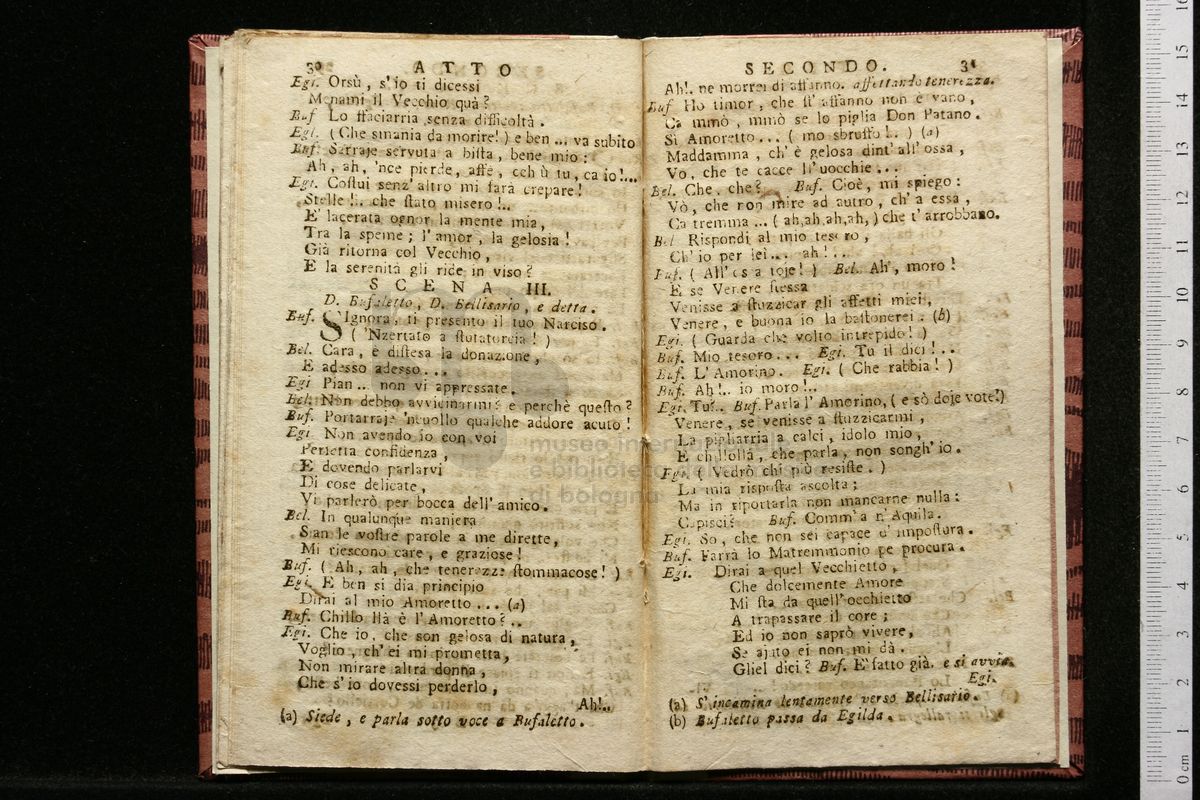 30 ATTO
Egi. Orsù, s'io ti dicessi
Menami il Vecchio quà?
Buf. Lo ffaciarria senza difficoltà.
Egi. (Che smania da morire!) e ben ... va subito
Buf. Serraje servuta a bista, bene mio:
Ah, ah, 'nce pierde, affè, cchiù tu, ca io!...
Egi. Costui senz' altro mi farà crepare!
Stelle!.. che stato misero!..
E' lacerata ognor la mente mia,
Tra la speme; l'amor, la gelosia!
Già ritorna col Vecchio,
E la serenità gli ride in viso?
SCENA III.
D. Bufaletto, D. Bellisario, e detta.
Buf. SIgnora, ti presento il tuo Narciso.
( 'Nzertato a stutatorcia! )
Bel. Cara, è distesa la donazione,
E adesso adesso...
Egi Pian... non vi appressate.
Bel. Non debbo avvicinarmi? e perchè questo?
Buf. Portarraje 'ncuollo qualche addore acuto!
Egi. Non avendo io con voi
Perfetta confidenza,
E dovendo parlarvi
Di cose delicate,
Vi parlerò per bocca dell' amico.
Bel. In qualunque maniera
Sian le vostre parole a me dirette,
Mi riescono care, e graziose!
Buf. ( Ah, ah, che tenerezze stommacose! )
Egi. E ben si dia principio
Dirai al mio Amoretto... (a)
Buf. Chillo llà è l'Amoretto?..
Egi. Che io, che son gelosa di natura,
Voglio, ch' ei mi prometta,
Non mirare altra donna,
Che s'io dovessi perderlo,
Ah!..
(a) Siede, e parla sotto voce a Bufaletto.
SECONDO. 31
Ah!. ne morrei di affanno. affettando tenerezza.
Buf Ho timor, che st' affanno non è vano,
Ca mmò, mmò se lo piglia Don Patano.
Si Amoretto... ( mo sbruffo!.. ) (a)
Maddamma, ch' è gelosa dint' all' ossa,
Vo, che te cacce ll' uocchie...
Bel. Che, che? Buf. Cioè, mi spiego:
Vò, che non mire ad autro, ch' a essa,
Ca tremma ... ( ah,ah,ah,ah, ) che t' arrobbano.
Bel Rispondi al mio tesoro,
Ch' io per lei... ah!...
Buf. ( All' os a toje! ) Bel. Ah', moro!
E se Venere stessa
Venisse a stuzzicar gli affetti miei,
Venere, e buona io la bastonerei. (b)
Egi. ( Guarda che volto intrepido! )
Buf. Mio tesoro... Egi. Tu il dici!..
Buf. L' Amorino. Egi. ( Che rabbia! )
Buf. Ah!.. io moro!..
Egi. Tu?.. Buf. Parla l' Amorino, ( e sò doje vote!)
Venere, se venisse a stuzzicarmi,
La pigliarria a calci, idolo mio,
E chillollà, che parla, non songh' io.
Egi. ( Vedrò chi più resiste. )
La mia risposta ascolta;
Ma in riportarla non mancarne nulla:
Capisci? Buf. Comm' a n' Aquila.
Egi. So, che non sei capace d' impostura.
Buf. Farrà lo Matremmonio pe procura.
Egi. Dirai a quel Vecchietto,
Che dolcemente Amore
Mi sta da quell' occhietto
A trapassare il core;
Ed io non saprò vivere,
Se ajuto ei non mi dà.
Gliel dici? Buf. E' fatto già. e si avvia.
Egi.
(a) S' incamina lentamente verso Bellisario.
(b) Bufaletto passa da Egilda.